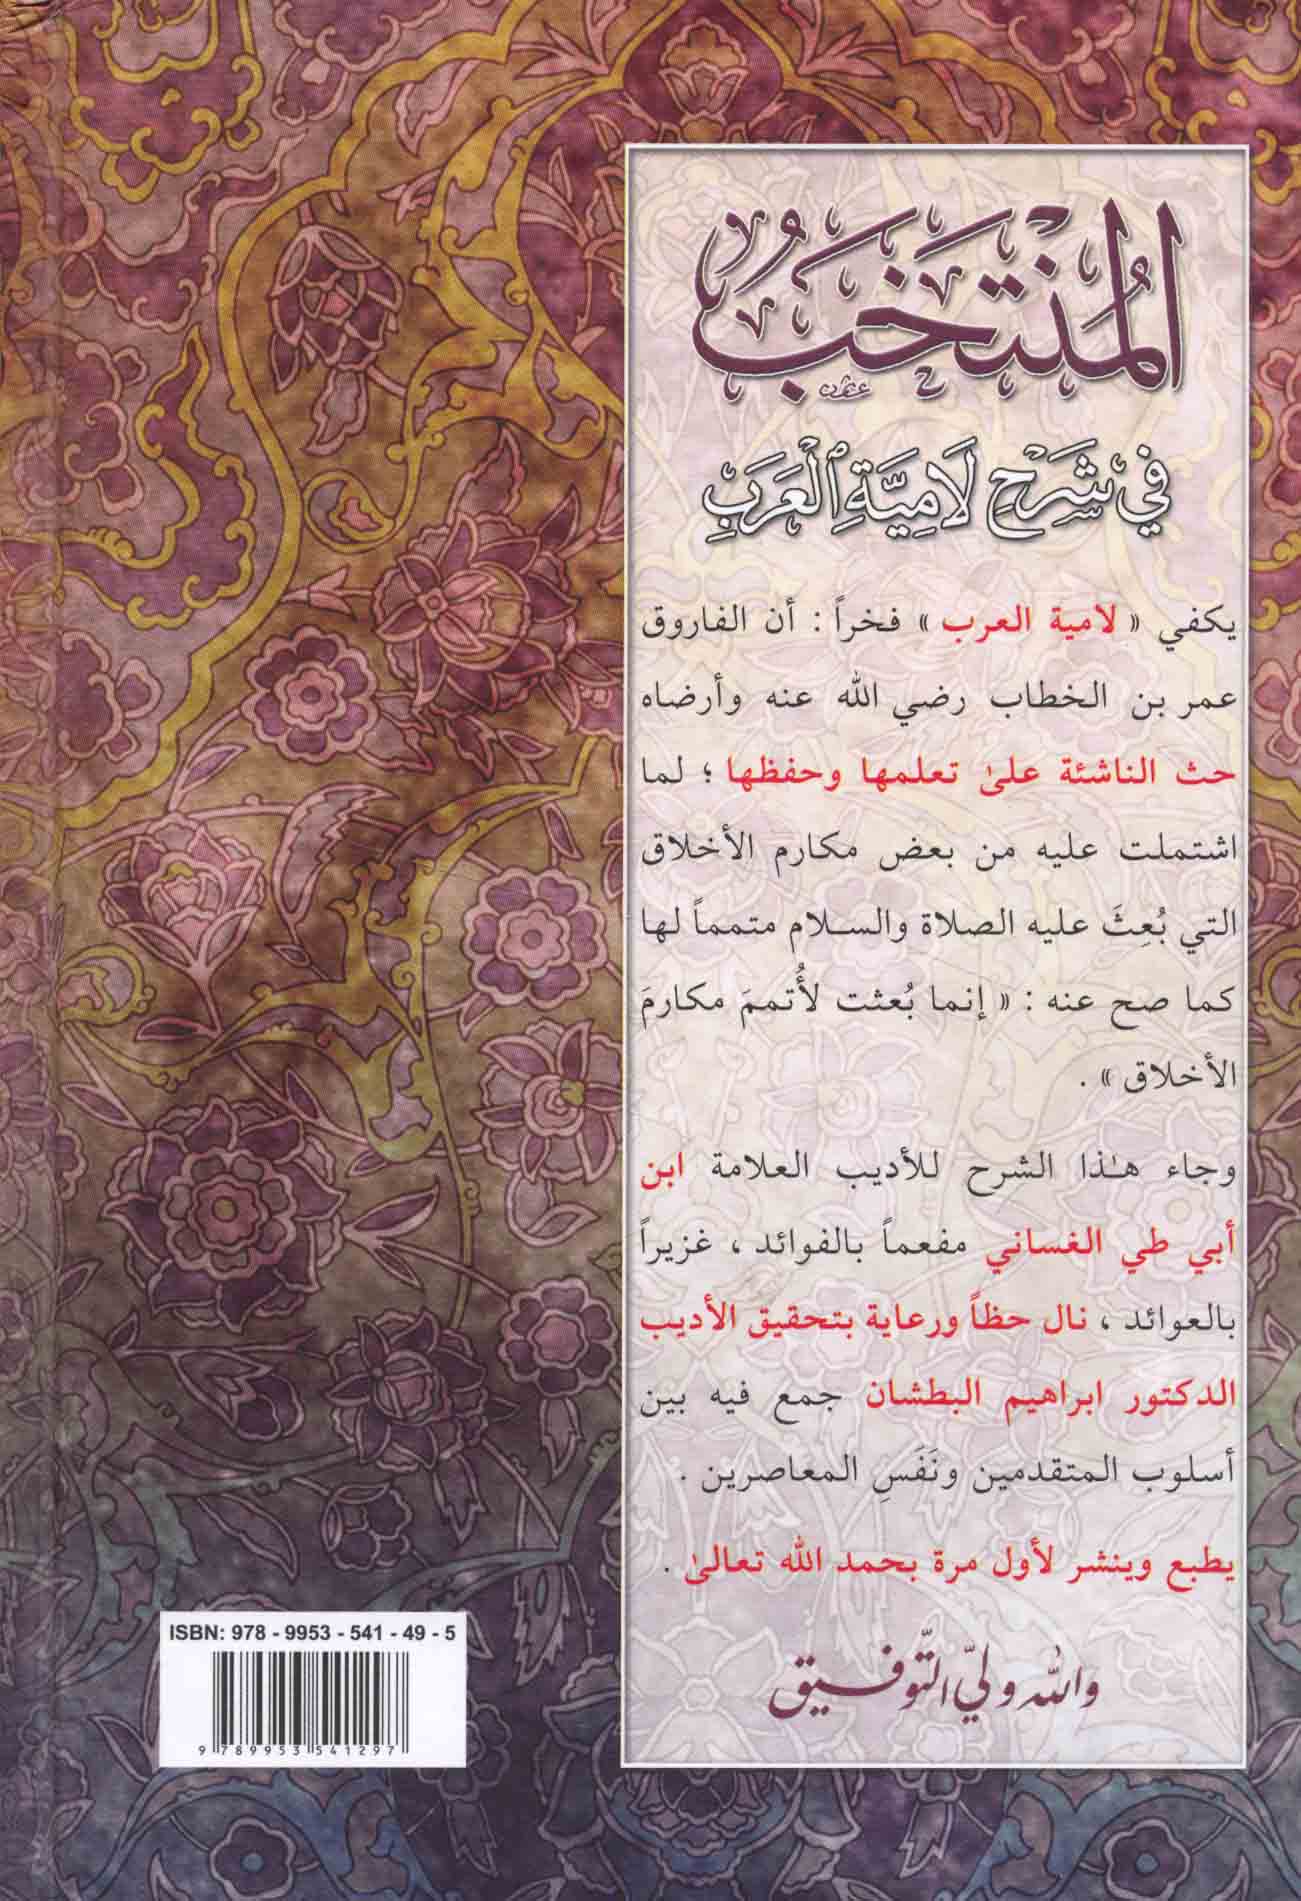 المُنْتَخَبُ
في شَرْحِ لَامِيَّةِ ٱلْعَرَبِ
يكفي « لامية العرب » فخراً : أن الفاروق
عمر بن الخطاب رضي الله عنه وأرضاه
حث الناشئة علىٰ تعلمها وحفظها ؛ لما
اشتملت عليه من بعض مكارم الأخلاق
التي بُعِثَ عليه الصلاة والسلام متمماً لها
كما صح عنه : « إنما بُعثت لأُتممَ مكارمَ
الأخلاق » .
وجاء هـٰذا الشرح للأديب العلامة ابن
أبي طي الغساني مفعماً بالفوائد ، غزيراً
بالعوائد ، نال حظاً ورعاية بتحقيق الأديب
الدكتور ابراهيم البطشان جمع فيه بين
أسلوب المتقدمين ونَفَسِ المعاصرين .
يطبع وينشر لأول مرة بحمد الله تعالىٰ .
والله ولي التوفيق
ISBN: 978 - 9953 - 541 - 49 - 5
9 789953 541297